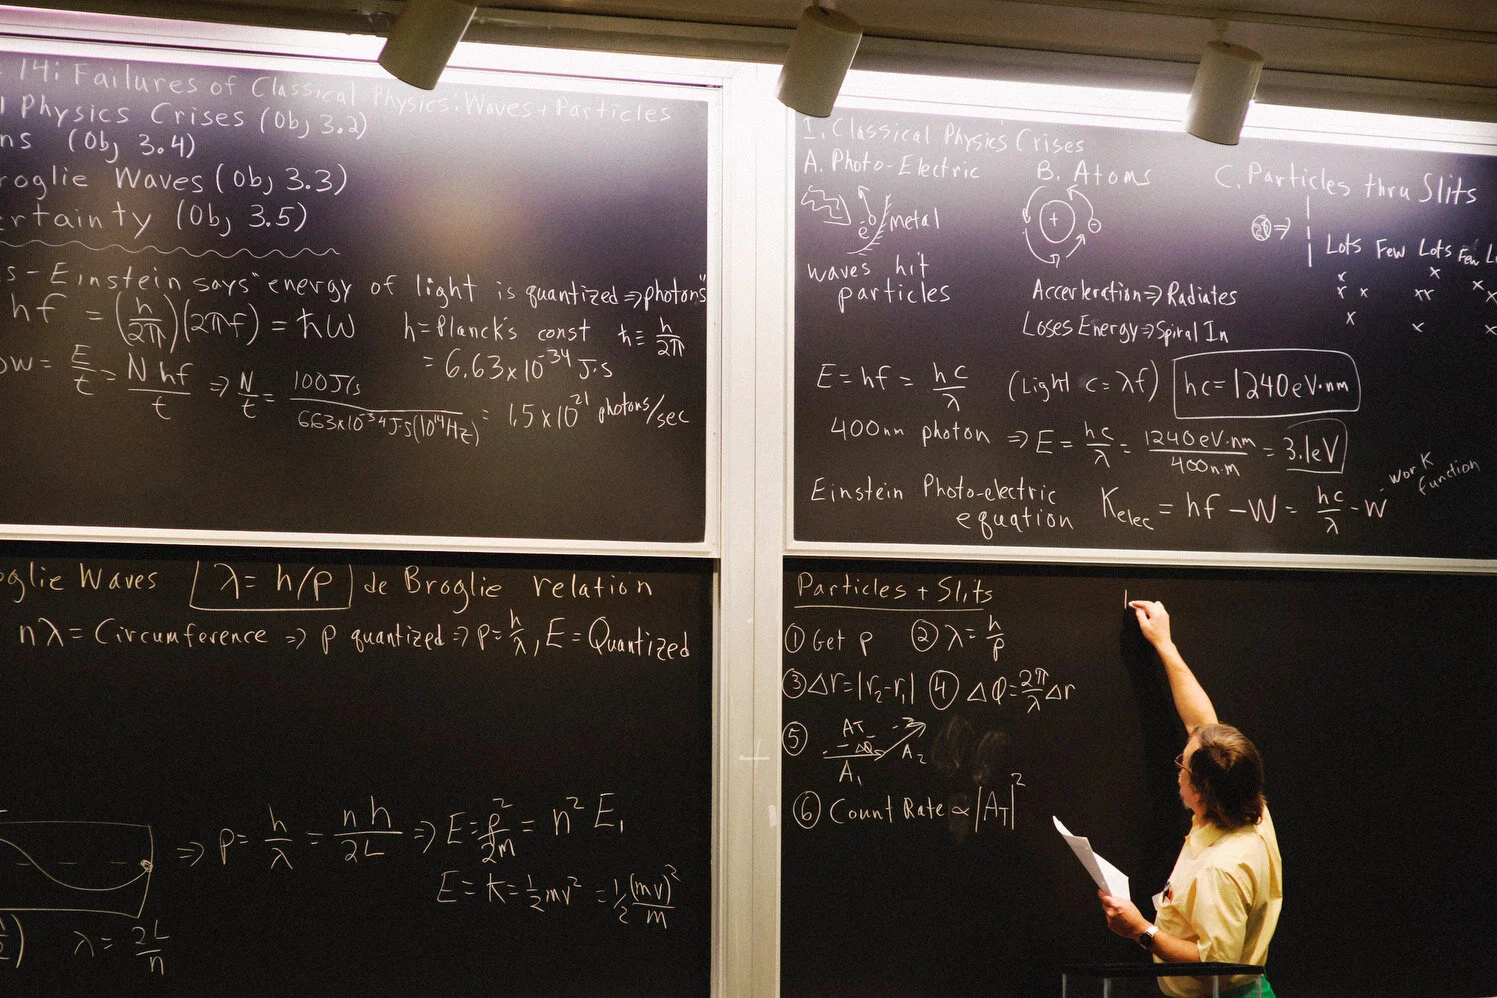 14: Failures of Classical Physics: Waves + Particles
Physics Crises (Obj 3.2)
ns (Obj 3.4)
roglie Waves (Obj 3.3)
ertainty (Obj 3.5)
s - Einstein says "energy of light is quantized ⇒ photons"
hf = (h/2π)(2πf) = ħω h = Planck's const ħ ≡ h/2π
= 6.63x10^-34 J·s
ow = E/t = Nhf/t ⇒ N/t = 100 J/s / 6.63x10^-34 J·s (10^14 Hz) = 1.5x10^21 photons/sec
I. Classical Physics Crises
A. Photo-Electric B. Atoms C. Particles thru Slits
metal
e-
+ -
Lots Few Lots Few L
waves hit
particles
Acceleration ⇒ Radiates
Loses Energy ⇒ Spiral In
E = hf = hc/λ (Light c = λf) hc = 1240 eV·nm
400nm photon ⇒ E = hc/λ = 1240 eV·nm/400 n·m = 3.1eV
Einstein Photo-electric
equation K_elec = hf - W = hc/λ - W work
function
oglie Waves λ = h/p de Broglie relation
nλ = Circumference ⇒ p quantized ⇒ p = h/λ, E = Quantized
⇒ p = h/λ = nh/2L ⇒ E = p²/2m = n² E₁
E = K = ½mv² = ½ (mv)²/m
λ = 2L/n
Particles + Slits
① Get p ② λ = h/p
③ Δr = |r₂ - r₁| ④ Δφ = 2π/λ Δr
⑤ A_T A₁ Δφ A₂
⑥ Count Rate ∝ |A_T|²